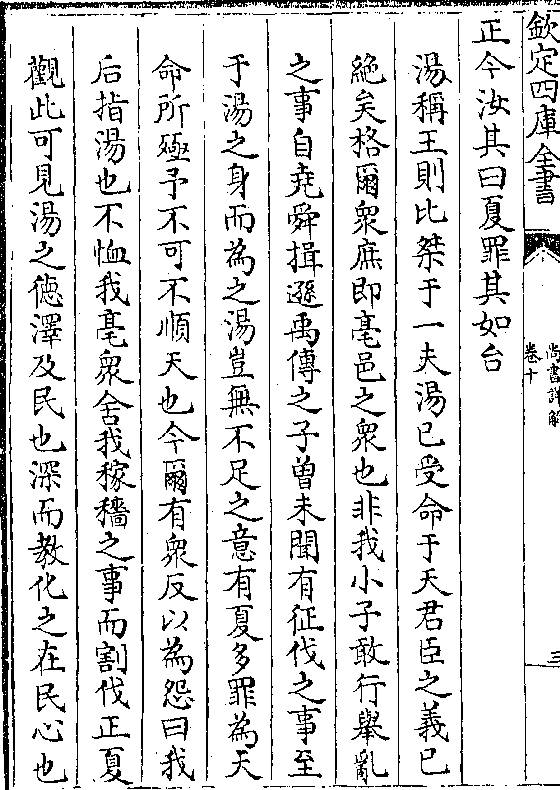 欽定四庫全書
尚書詳解
卷十
三
正今汝其曰夏罪其如台
湯稱王則比桀于一夫湯已受命于天君臣之義已
絶矣格爾衆庶即亳邑之衆也非我小子敢行舉亂
之事自堯舜揖遜禹傳之子曾未聞有征伐之事至
于湯之身而為之湯豈無不足之意有夏多罪為天
命所殛予不可不順天也今爾有衆反以為怨曰我
后指湯也不恤我亳衆舍我稼穡之事而割伐正夏
觀此可見湯之德澤及民也深而教化之在民心也